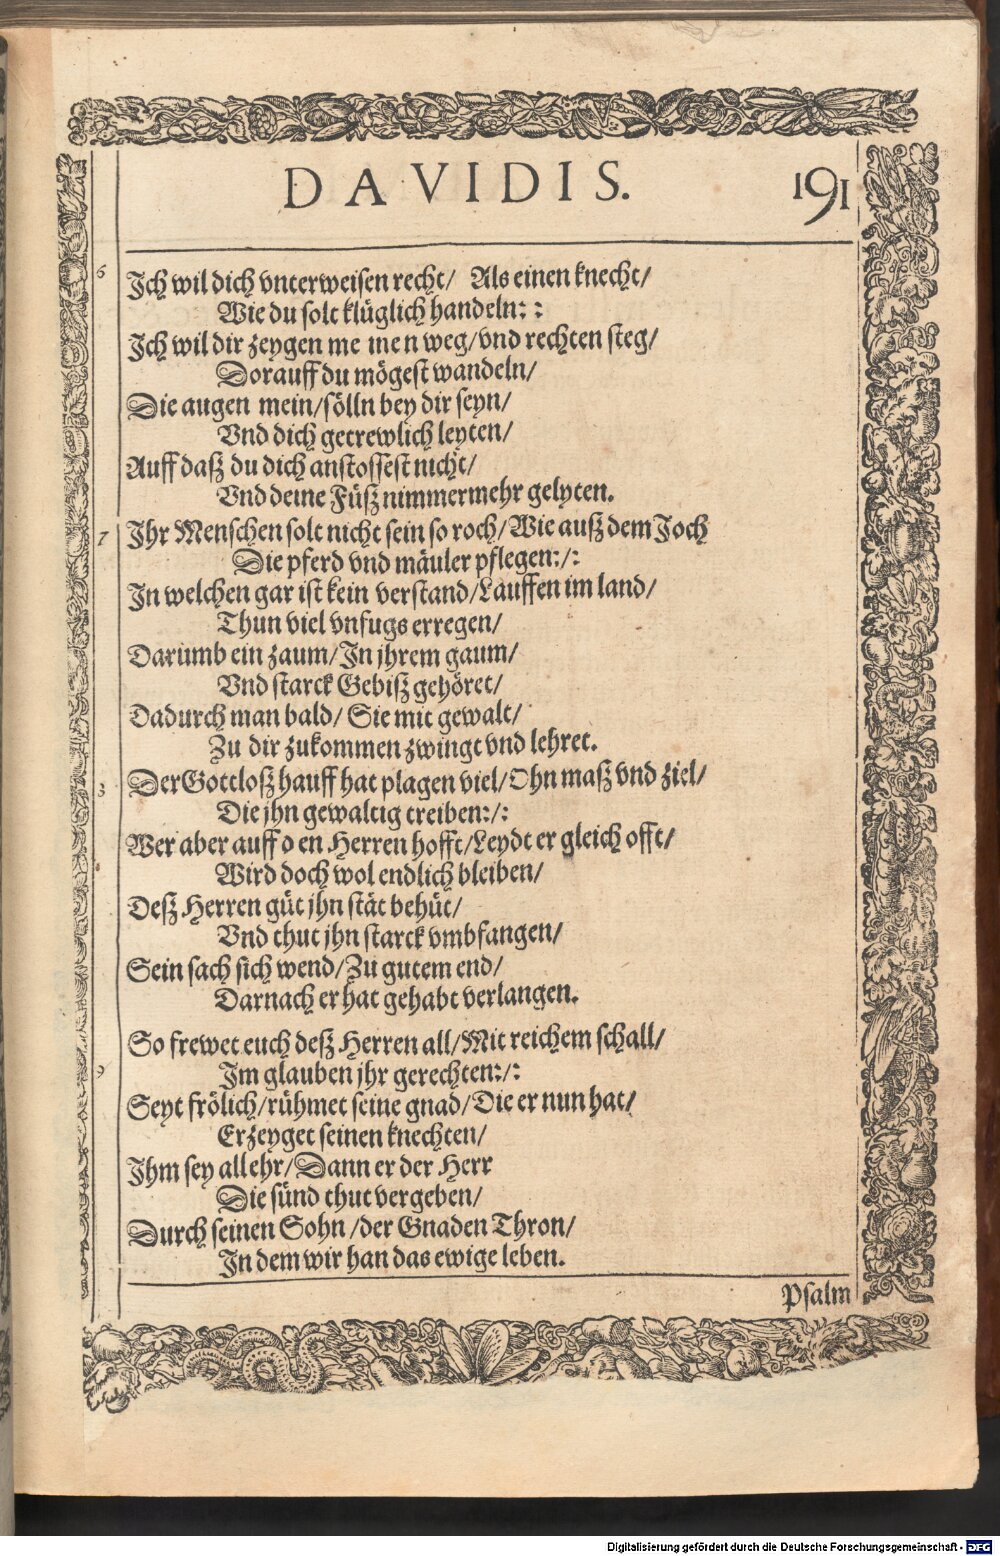 DAVIDIS. 191
6 Ich wil dich vnterweisen recht/ Als einen knecht/
Wie du solt klüglich handeln: :
Ich wil dir zeygen meinen weg/ vnd rechten steg/
Dorauff du mögest wandeln/
Die augen mein/ sölln bey dir seyn/
Vnd dich getrewlich leyten/
Auff daß du dich anstossest nicht/
Vnd deine Füß nimmermehr gelyten.
7 Ihr Menschen solt nicht sein so roch/ Wie auß dem Joch
Die pferd vnd mäuler pflegen:/:
In welchen gar ist kein verstand/ Lauffen im land/
Thun viel vnfugs erregen/
Darumb ein zaum/ In jhrem gaum/
Vnd starck Gebiß gehöret/
Dadurch man bald/ Sie mit gewalt/
Zu dir zukommen zwingt vnd lehret.
Der Gottloß hauff hat plagen viel/ Ohn maß vnd ziel/
Die jhn gewaltig treiben:/:
Wer aber auff den Herren hofft/ Leydt er gleich offt/
Wird doch wol endlich bleiben/
Deß Herren güt jhn stät behüt/
Vnd thut jhn starck vmbfangen/
Sein sach sich wend/ Zu gutem end/
Darnach er hat gehabt verlangen.
So frewet euch deß Herren all/ Mit reichem schall/
9 Im glauben jhr gerechten:/:
Seyt frölich/ rühmet seine gnad/ Die er nun hat/
Erzeyget seinen knechten/
Ihm sey all ehr/ Dann er der Herr
Die sünd thut vergeben/
Durch seinen Sohn/ der Gnaden Thron/
In dem wir han das ewige leben.
Psalm
Digitalisierung gefördert durch die Deutsche Forschungsgemeinschaft - DFG